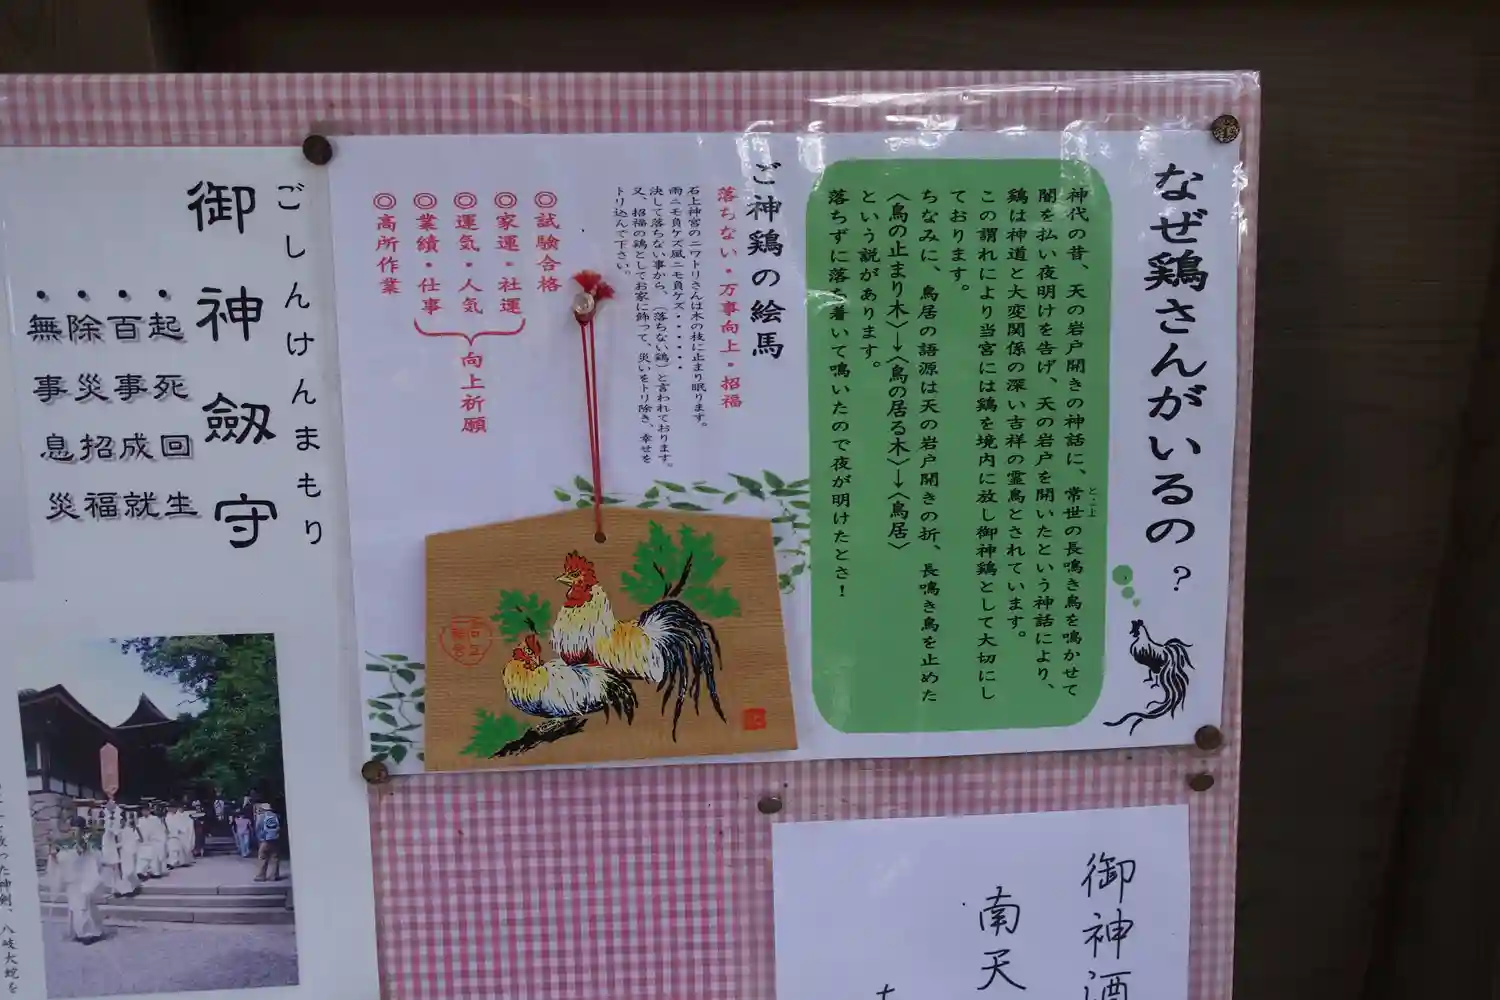 なぜ鶏さんがいるの？
神代の昔、天の岩戸開きの神話に、常世の長鳴き鳥を鳴かせて
とこよ
闇を払い夜明けを告げ、天の岩戸を開いたという神話により、
鶏は神道と大変関係の深い吉祥の霊鳥とされています。
この謂れにより当宮には鶏を境内に放し御神鶏として大切にし
ております。
ちなみに、鳥居の語源は天の岩戸開きの折、長鳴き鳥を止めた
〈鳥の止まり木〉→〈鳥の居る木〉→〈鳥居〉
という説があります。
落ちずに落ち着いて鳴いたので夜が明けたとさ！
ご神鶏の絵馬
落ちない・万事向上・招福
石上神宮のニワトリさんは木の枝に止まり眠ります。
雨ニモ負ケズ風ニモ負ケズ・・・・・
決して落ちない事から、（落ちない鶏）と言われております。
又、招福の鶏としてお家に飾って、災いをトリ除き、幸せを
トリ込んで下さい。
◎試験合格
◎家運・社運
◎運気・人気
◎業績・仕事
◎高所作業
向上祈願
ごしんけんまもり
御神劔守
・起死回生
・百事成就
・除災招福
・無事息災
御神酒
南天